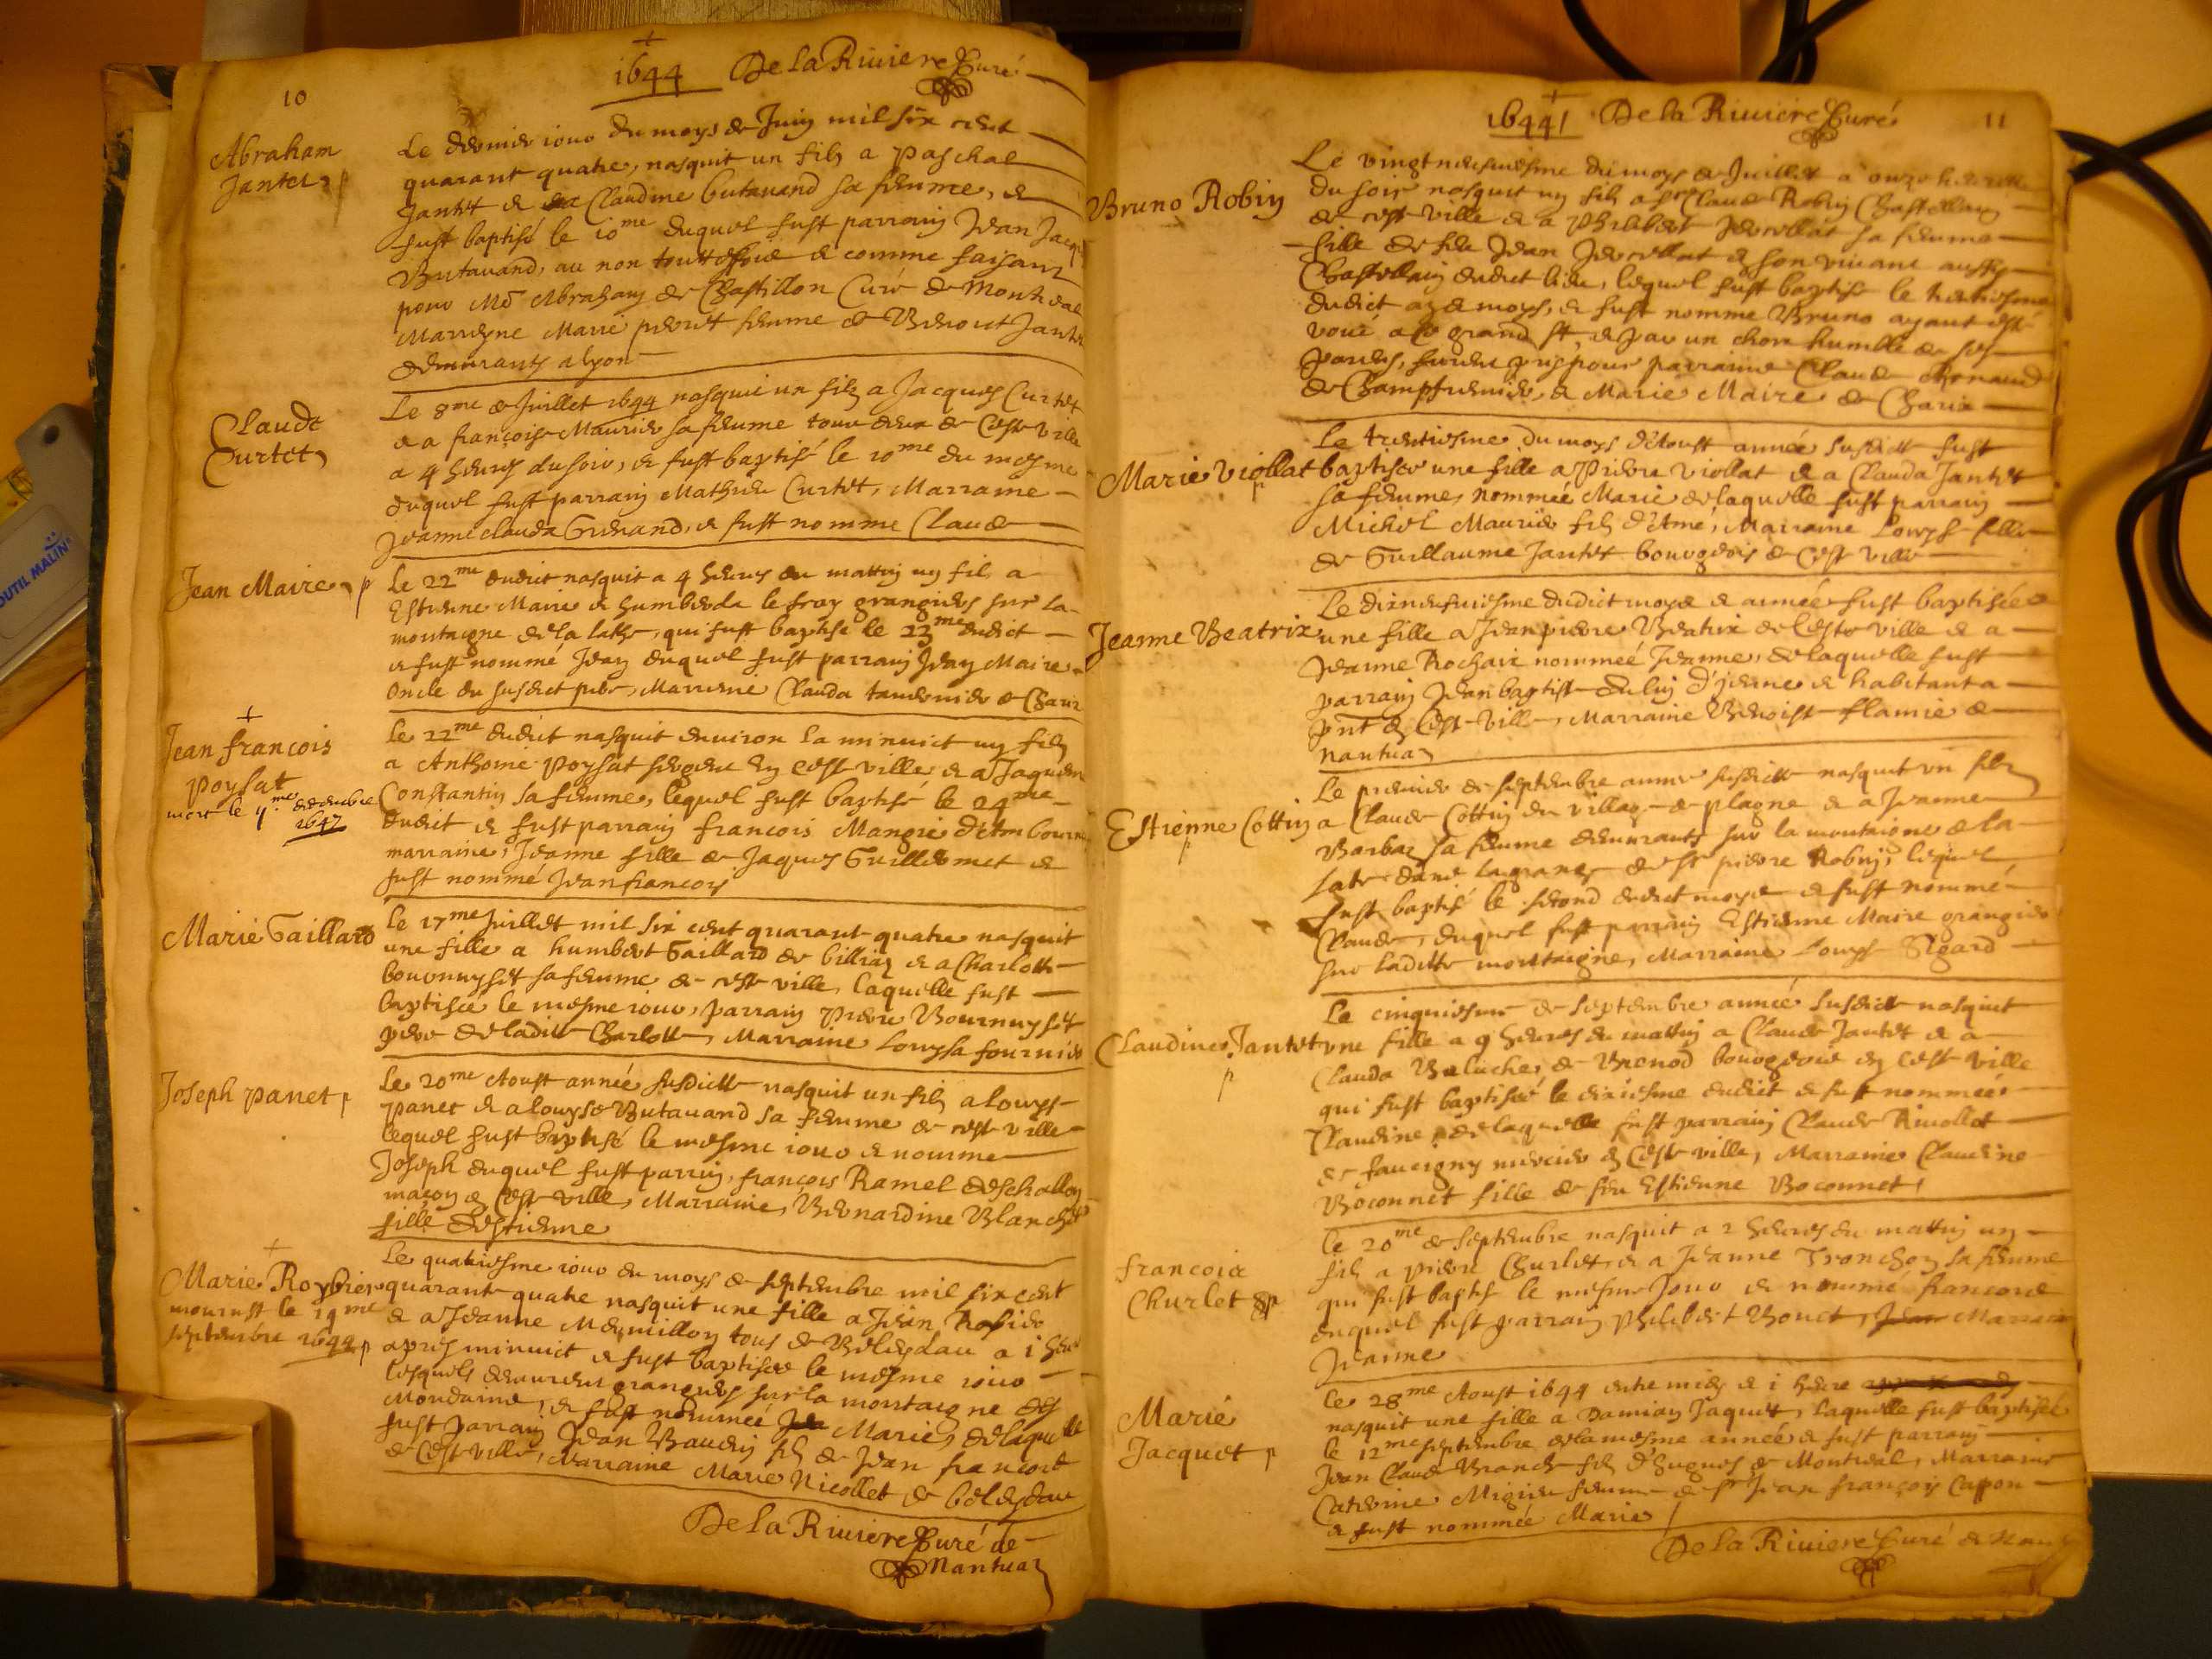 10
1644 De la Riviere Curé
Abraham
Jantet
Le dernier iour du moys de Juin mil six cent
quarant quatre, nasquit un filz a Paschal
Jantet & Claudine butavand sa femme, &
fust baptisé le 10me duquel fust parrain Jean Jacq
Butavand, au non & comme faisant
pour Me Abraham de Chastillon Curé de Montreal
Marreyne Marie femme de Benoict Jantet
demeurants a lyon
Claude
Curtet
Le 8me de Juillet 1644 nasquit un filz a Jacques Curtet
& a françoise Maurier sa femme tous deux de Ceste ville
a 4 heures du soir, & fust baptisé le 10me du mesme
duquel fust parrain Mathieu Curtet, Marraine
Jeanne clauda & fust nomme Claude
Jean Maire p
Le 22me dudict nasquit a 4 heures du mattin un filz a
Estienne Maire & humberda le fray grangiers sur la
montaigne de la lathe, qui fust baptisé le 23me dudict
& fust nommé Jean duquel fust parrain Jean Maire
Oncle du susdict pere, Marreine Clauda de Charix
Jean françois
Poysat
mort le decembre
1647
Le 22me dudict nasquit environ la minuict un filz
a Anthoine Poysat sergent en ceste ville & a Jaquema
Constantin sa femme, lequel fust baptisé le 24me
dudict & fust parrain francois Mangié
marraine, Jeanne fille de Jaques Guillermet &
fust nommé Jean francois
Marie Gaillard
Le 17me Juillet mil six cent quarant quatre nasquit
une fille a humbert Gaillard de billiaz & a Charlotte
sa femme de ceste ville, laquelle fust
baptisée le mesme iour, parrain Pierre
pere de ladicte Charlotte, Marraine Lowysa fournier
Joseph panet p
Le 20me Aoust année susdicte nasquit un filz a Lowys
panet & a lowyse Butavand sa femme de ceste ville
lequel fust baptisé le mesme iour & nomme
Joseph duquel fust parrin, françois Ramel
maçon de Ceste ville, Marraine, Bernardine Blanchet
fille d'estienne
Marie
mourust le 19me
septembre 1644 p
Le quatriesme iour du moys de septembre mil six cent
quarant quatre nasquit une fille a Jean
& a Jeanne tous de Beleydou a 1 heure
apres minuict & fust baptisée le mesme iour
lesquels demeurent grangiers sur la montaigne des
Mondaine, & fust nommée Marie, de laquelle
fust parrain Jean Baudin filz de Jean francois
de Ceste ville, Marraine Marie Nicollet de beleydou
De la Riviere Curé de
Nantua
1644 De la Riviere Curé
11
Bruno Robin
Le vingt neufviesme du moys de Juillet a onze heures
du soir nasquit un filz a Sr Claude Robin Chastellain
de ceste ville & a Philiberte sa femme
fille de feu Jean & son vivant aussy
Chastellain dudict lieu, lequel fust baptisé le trentiesme
dudict an & moys, & fust nomme Bruno ayant esté
voué a ce grand St, & par un chois humble de ses
parens, furent pris pour parraine Claude
de Champfromier, & Marie Maire de Charix
Marie Viollat
p
Le trentiesme du moys d'Aoust année susdicte fust
baptisée une fille a Pierre Viollat & a Clauda Jantet
sa femme, nommée Marie de laquelle fust parrain
Michel Maurier filz d'Amé, Marraine Lowyse fille
de Guillaume Jantet bourgeois de Ceste ville
Jeanne Beatrix
Le dixneufviesme dudict moys & année fust baptisée
une fille a Jean pierre Beatrix de Ceste ville & a
Jeanne Rochaix nommée Jeanne, de laquelle fust
parrain Jean baptiste & habitant a
pnt en Ceste ville, Marraine Benoiste flamie de
Nantua
Estienne Cottin
p
Le premier de septembre annee susdicte nasquit un filz
a Claude Cottin du village de plagne & a Jeanne
Barbaz sa femme demeurants sur la montaigne de la
late dans la grange de Sr pierre Robin, lequel
fust baptisé le second dudict moys & fust nommé
Claude, duquel fust parrain Estienne Maire grangier
sur ladicte montaigne, Marraine Lowyse
Claudine Jantet
p
Le cinquiesme de septembre année susdicte nasquit
une fille a 9 heures du mattin a Claude Jantet & a
Clauda de Brenod bourgeois en Ceste ville
qui fust baptisée le dixiesme dudict & fust nommée
Claudine, de laquelle fust parrain Claude Rivollet
de faucigny mercier en Ceste ville, Marraine Claudine
Boconnet fille de feu Estienne Boconnet
francois
Churlet
Le 20me de septembre nasquit a 2 heures du mattin un
filz a Pierre Churlet & a Jeanne Tronchon sa femme
qui fust baptisé le mesme Jour & nommé francois
duquel fust parrain Philibert Bonet, Marraine
Jeanne
Marie
Jacquet p
Le 28me Aoust 1644 entre midy & 1 heure
nasquit une fille a Damian Jaquet, laquelle fust baptisée
le 12me septembre de la mesme année & fust parrain
Jean Claude filz d'hugues de Montreal, Marraine
Caterine femme de Sr Jean françois Capon
& fust nommée Marie
De la Riviere Curé de Nan
OUTIL MALIN